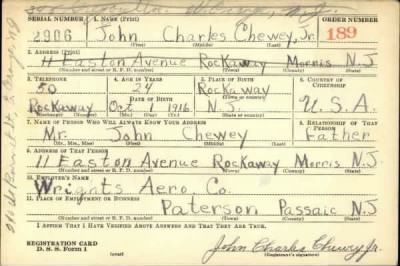 SERIAL NUMBER 1. NAME (Print) ORDER NUMBER
2906 John Charles Chewey, Jr. 189
(First) (Middle) (Last)
2. ADDRESS (Print)
11 Easton Avenue Rockaway Morris N.J.
(Number and street or R. F. D. number) (Town) (County) (State)
3. TELEPHONE 4. AGE IN YEARS 5. PLACE OF BIRTH 6. COUNTRY OF CITIZENSHIP
50 24 Rockaway
DATE OF BIRTH (Town or county)
Rockaway Oct 1 1916 N.J. U.S.A.
(Exchange) (Number) (Mo.) (Day) (Yr.) (State or country)
7. NAME OF PERSON WHO WILL ALWAYS KNOW YOUR ADDRESS 8. RELATIONSHIP OF THAT PERSON
Mr. John Chewey Father
(Mr., Mrs., Miss) (First) (Middle) (Last)
9. ADDRESS OF THAT PERSON
11 Easton Avenue Rockaway Morris N.J.
(Number and street or R. F. D. number) (Town) (County) (State)
10. EMPLOYER'S NAME
Wrights Aero. Co.
11. PLACE OF EMPLOYMENT OR BUSINESS
Paterson Passaic N.J.
(Number and street or R. F. D. number) (Town) (County) (State)
I AFFIRM THAT I HAVE VERIFIED ABOVE ANSWERS AND THAT THEY ARE TRUE.
REGISTRATION CARD
D. S. S. Form 1
John Charles Chewey Jr.
(Registrant's signature)